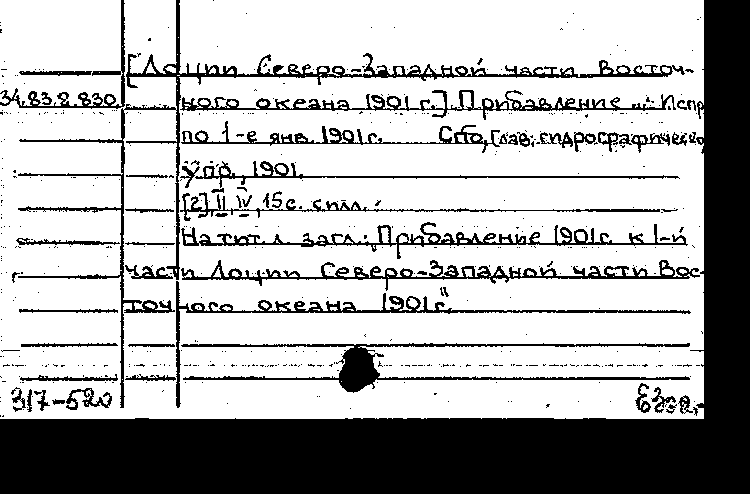 [Лоции Северо-Западной части Восточ-
34.83.8.830 ного океана 1901 г.]. Прибавление ... Испр
по 1-е янв. 1901г. Спб, Глав. гидрографическо
упр., 1901.
[2], II, IV, 15 с. с илл.
На тит. л. загл.: „Прибавление 1901г. к I-й
части Лоции Северо-Западной части Вос-
точного океана 1901г."
317-520